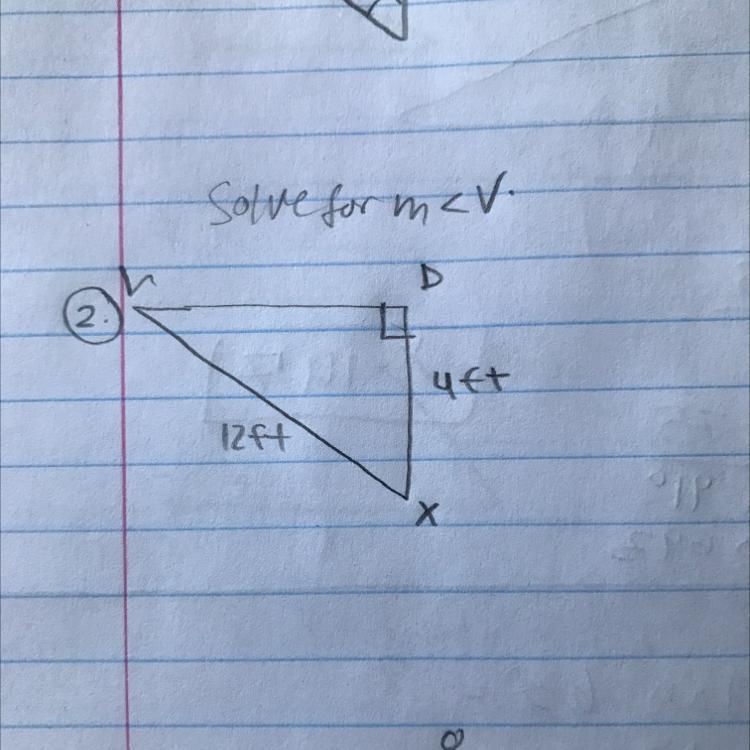 Solve for m<V.
V
D
2.
4ft
12ft
X